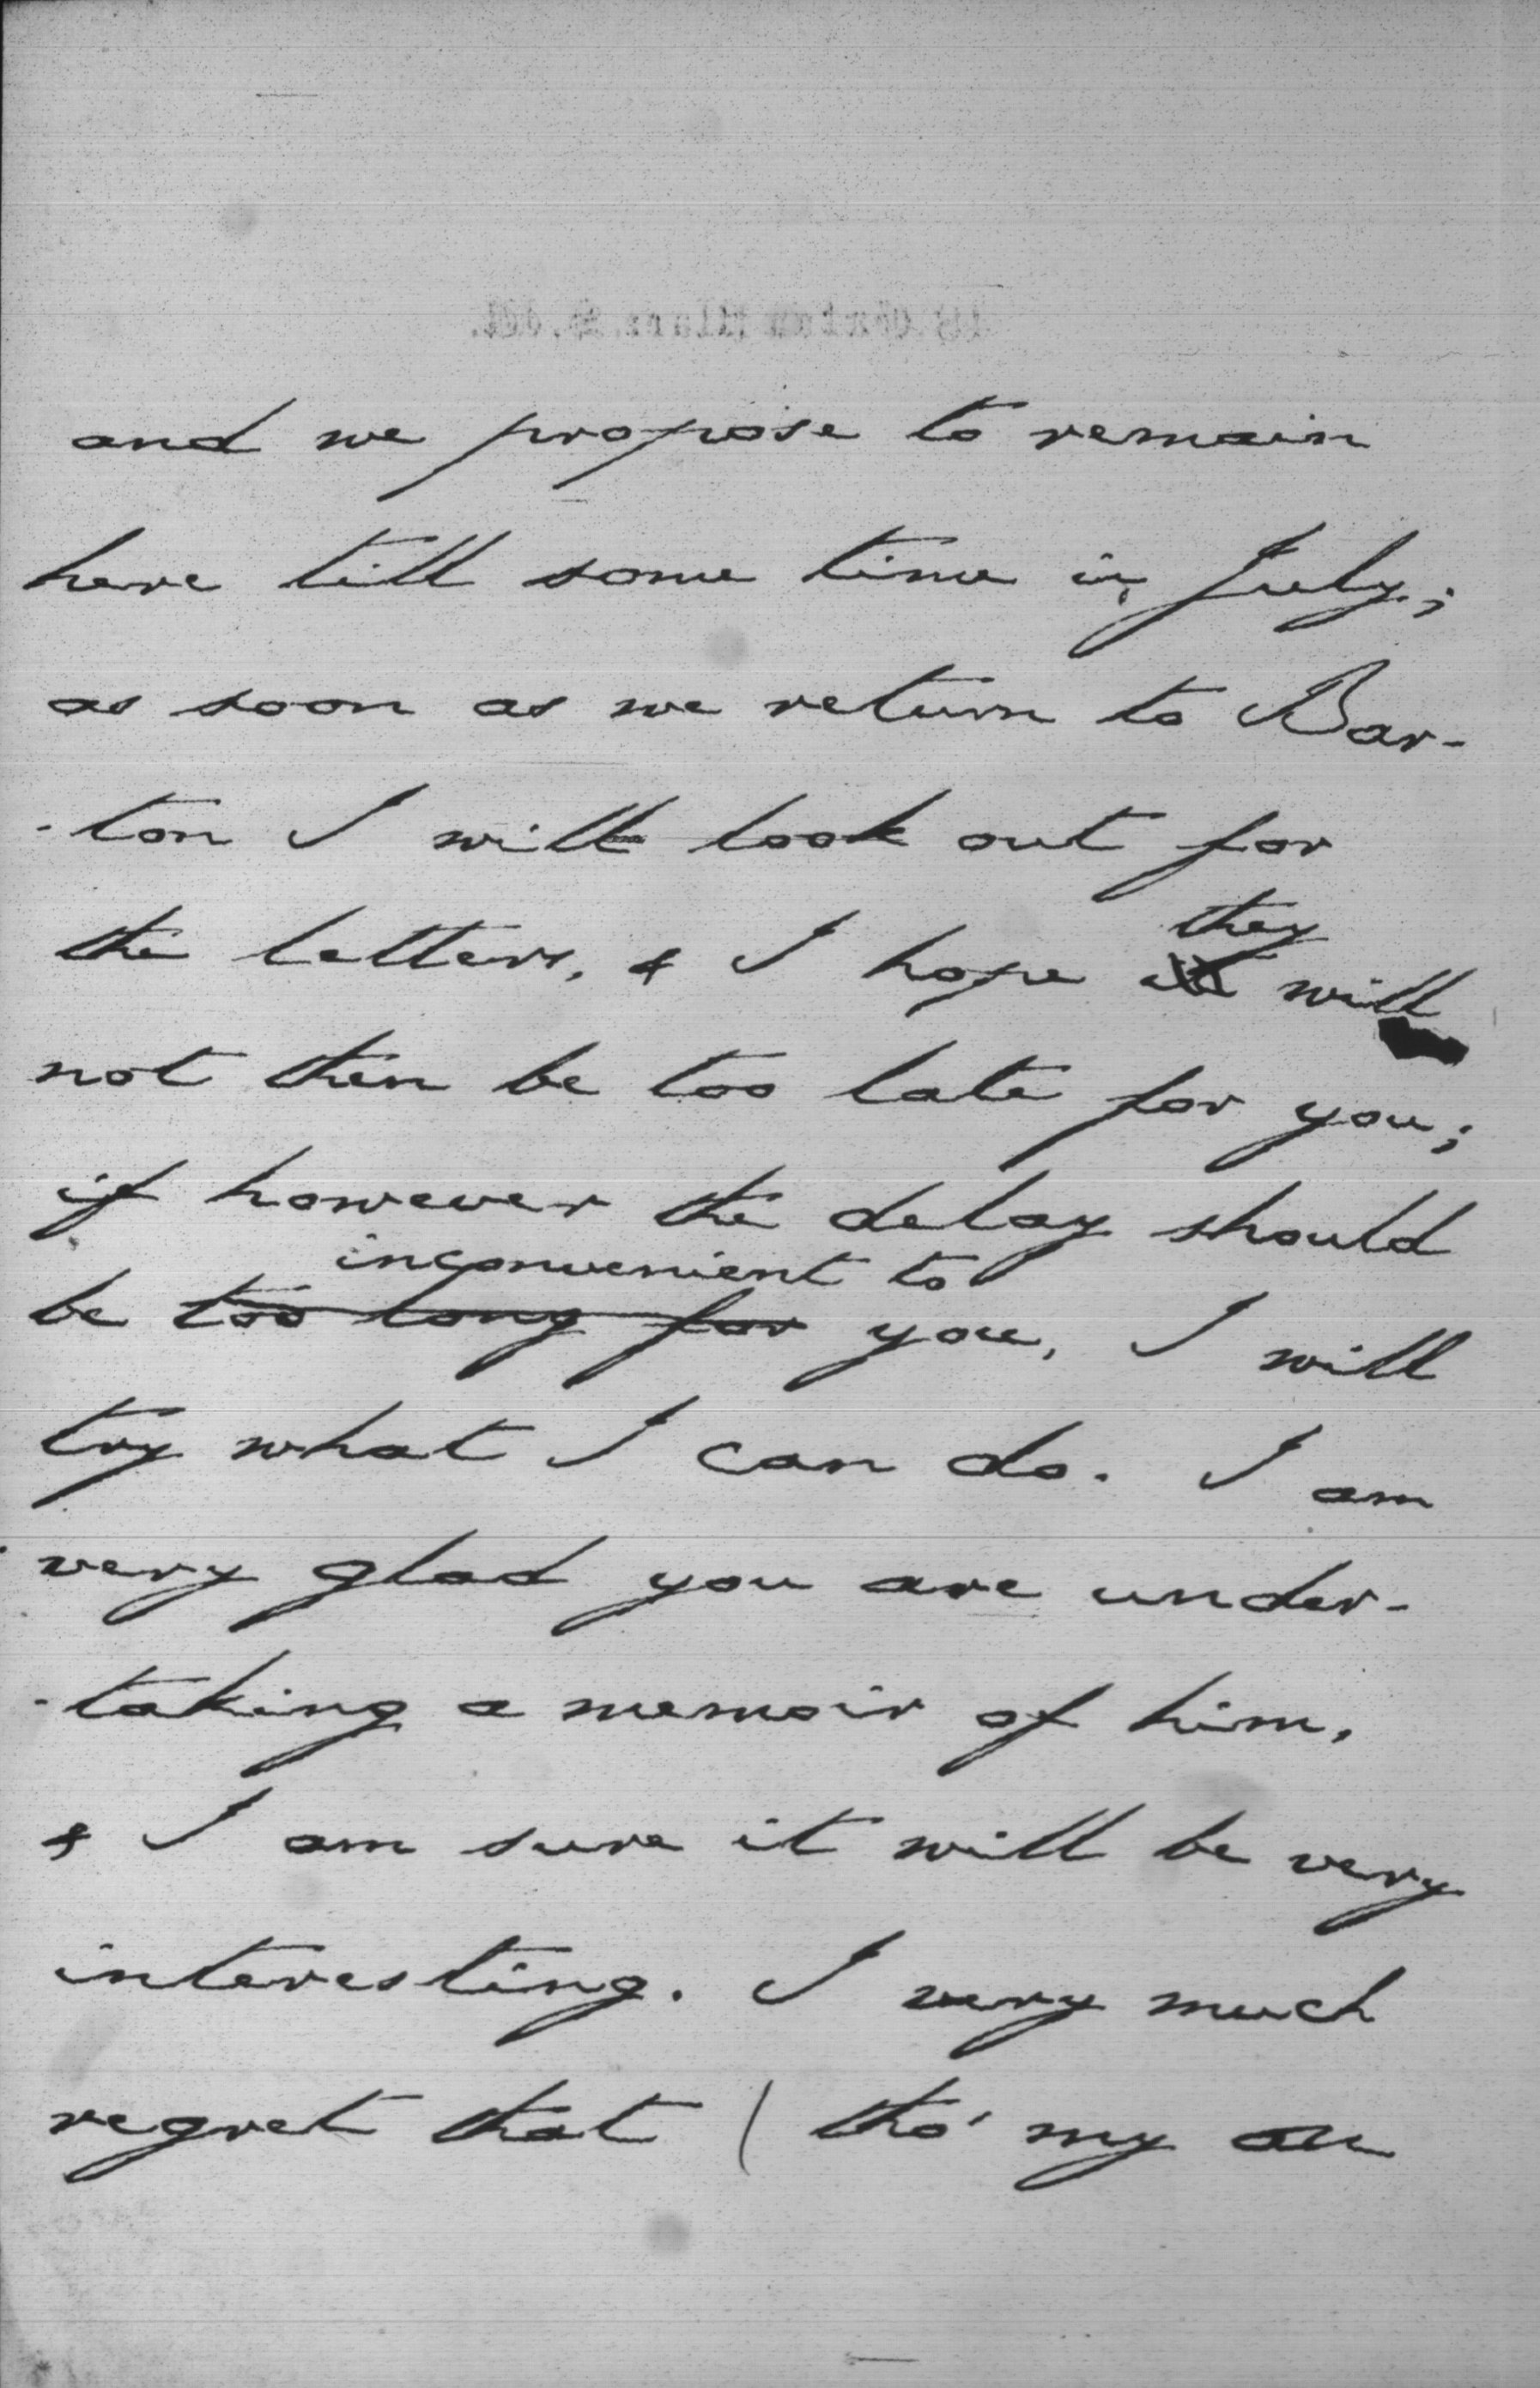 and we propose to remain
here till some time in July;
as soon as we return to Bar-
-ton I will look out for
the letters, & I hope they will
not then be too late for you;
if however the delay should
inconvenient to
be too long for you, I will
try what I can do. I am
very glad you are under-
-taking a memoir of him,
& I am sure it will be very
interesting. I very much
regret that (tho' my